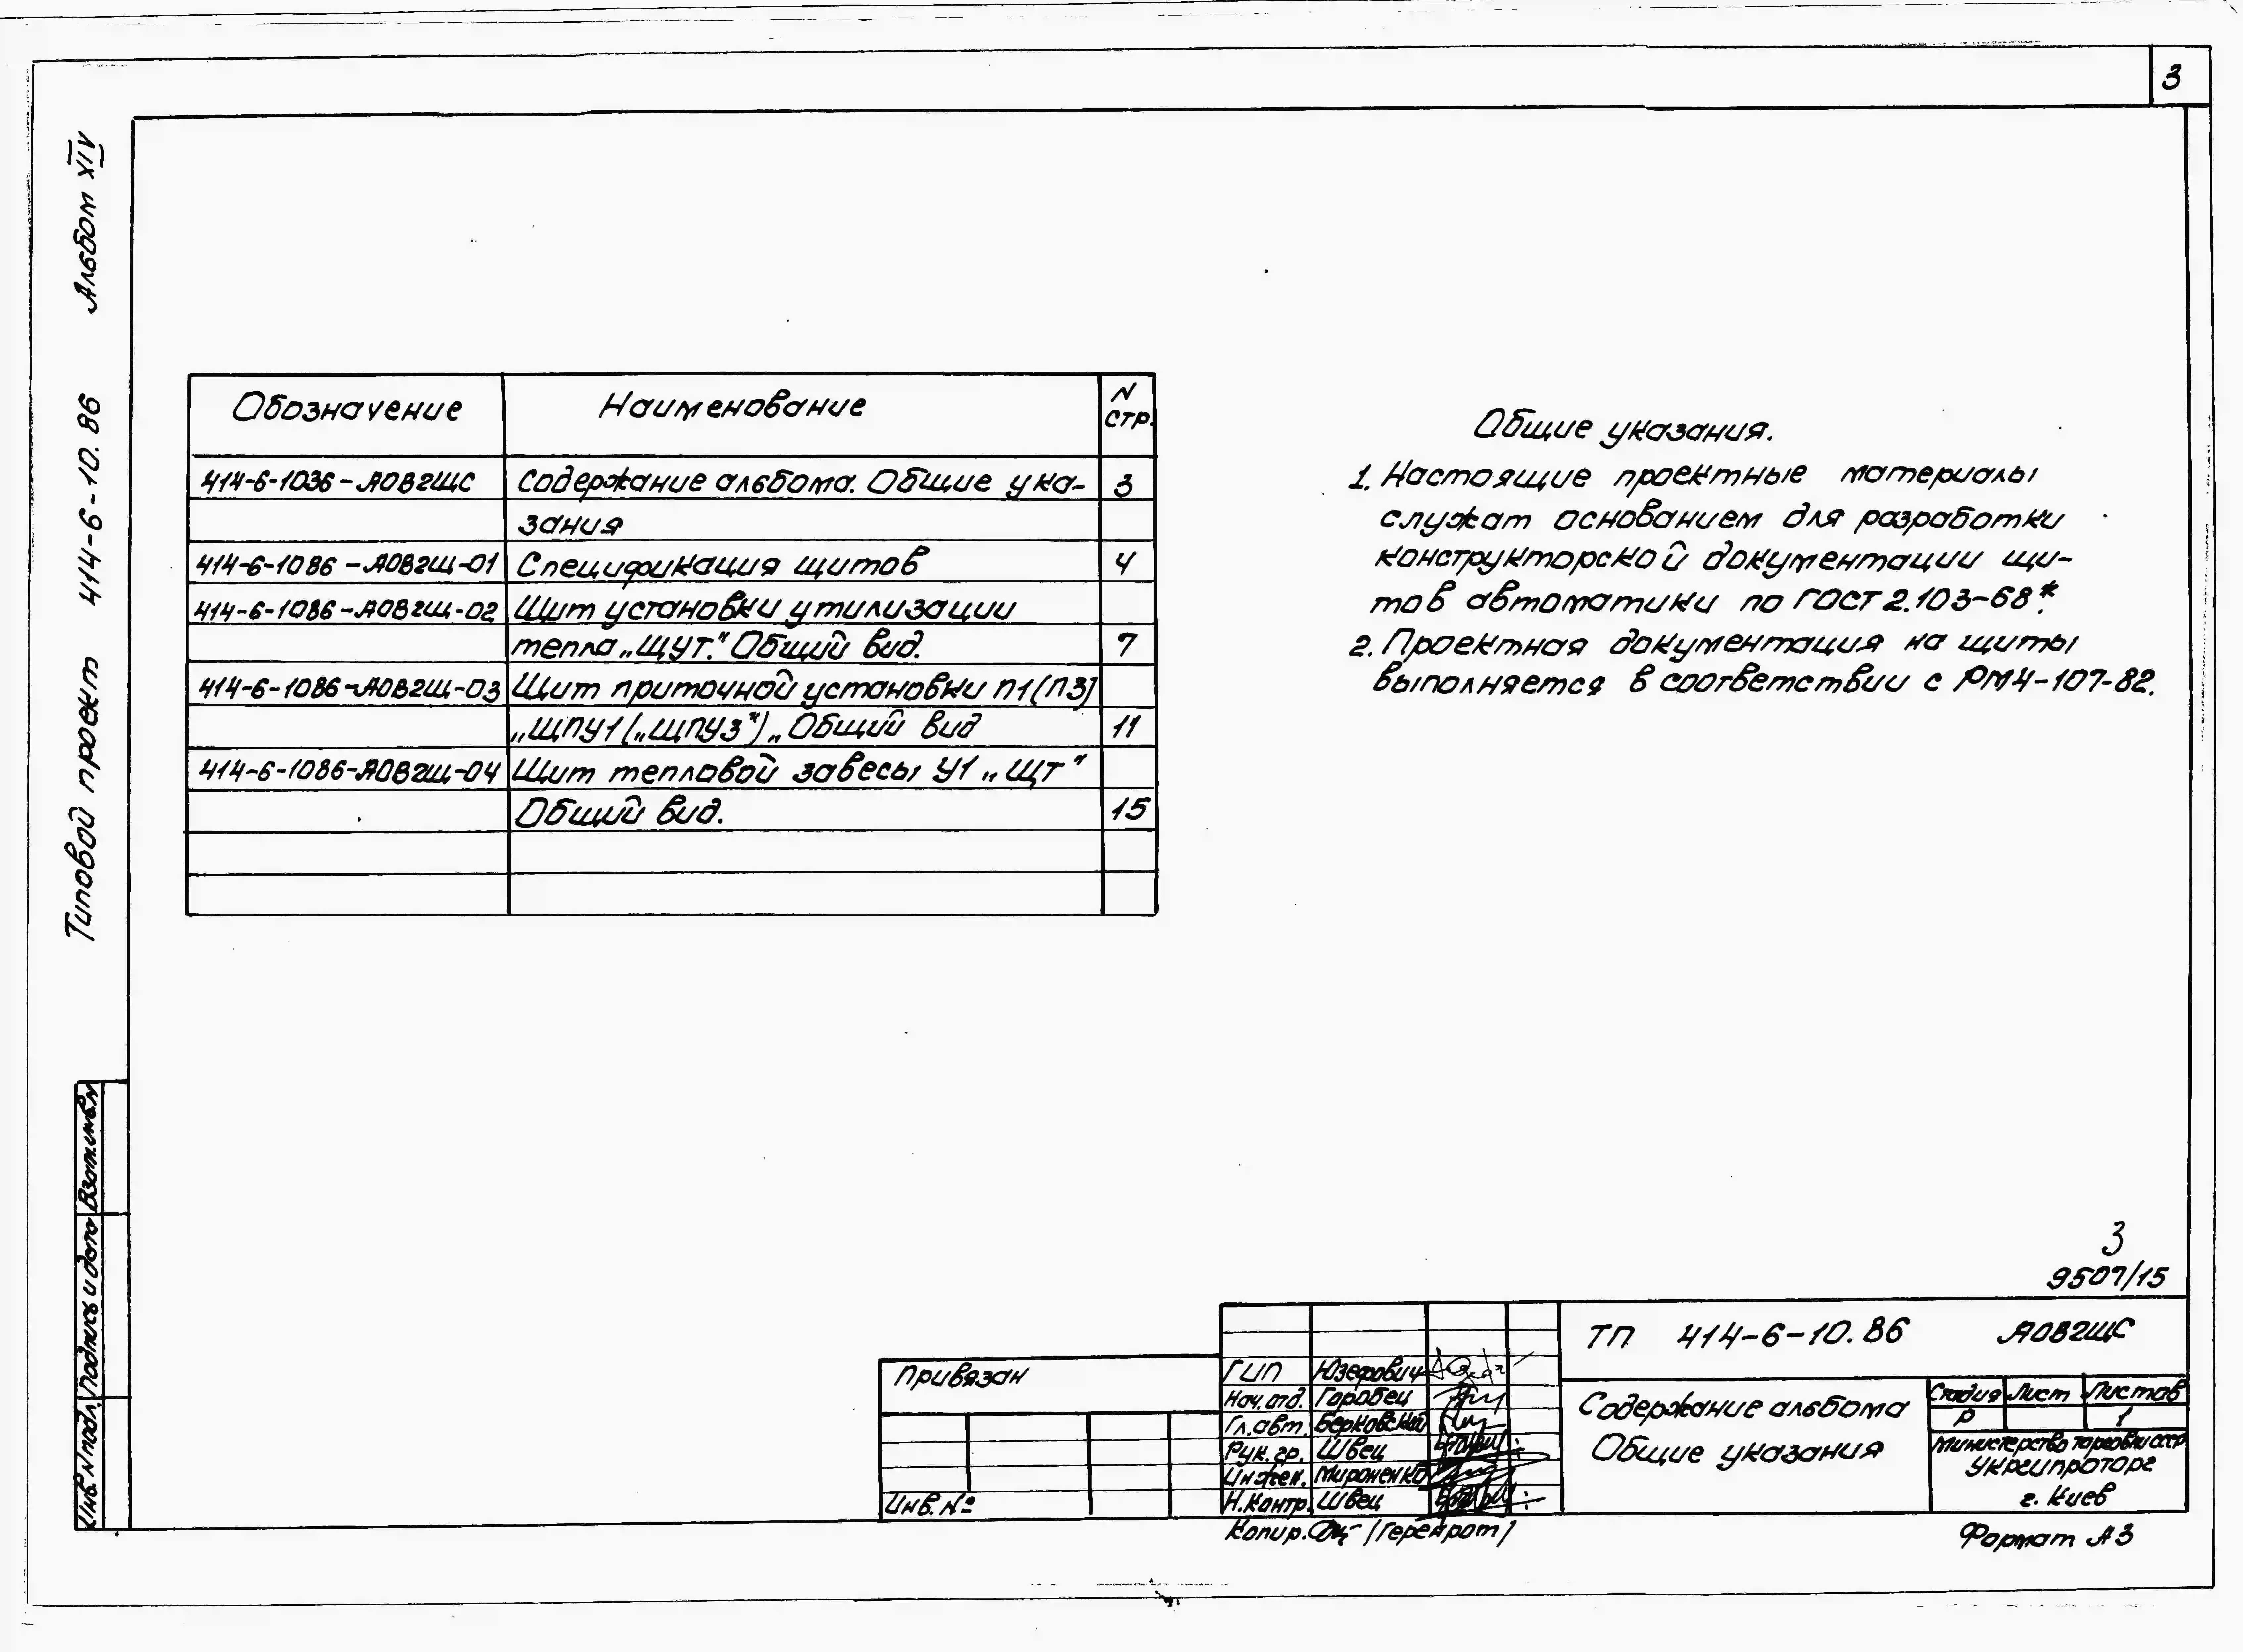 3
Альбом XIV
Типовой проект 414-6-10.86
Обозначение Наименование N стр.
414-6-1036-АОВ2ЩС Содержание альбома. Общие ука- 3
зания
414-6-1086-АОВ2Щ-01 Спецификация щитов 4
414-6-1086-АОВ2Щ-02 Щит установки утилизации
тепла „ЩУТ." Общий вид. 7
414-6-1086-АОВ2Щ-03 Щит приточной установки П1(П3)
„ЩПУ1(„ЩПУ3")„ Общий вид 11
414-6-1086-АОВ2Щ-04 Щит тепловой завесы У1 „ЩТ"
Общий вид. 15
Общие указания.
1. Настоящие проектные материалы
служат основанием для разработки
конструкторской документации щи-
тов автоматики по ГОСТ 2.103-68*.
2. Проектная документация на щиты
выполняется в соответствии с РМ4-107-82.
Взам.инв.N
Подпись и дата
Инв.N подл.
3
9507/15
Привязан
Инв.№
ГИП Юзефович
Нач.отд. Горобец
Гл.авт. Берковский
Рук.гр. Швец
Инжен. Мироненко
Н.Контр. Швец
ТП 414-6-10.86 АОВ2ЩС
Содержание альбома
Общие указания
Стадия Лист Листов
Р 1
Министерство торговли СССР
Укргипроторг
г. Киев
Копир.
Формат А3